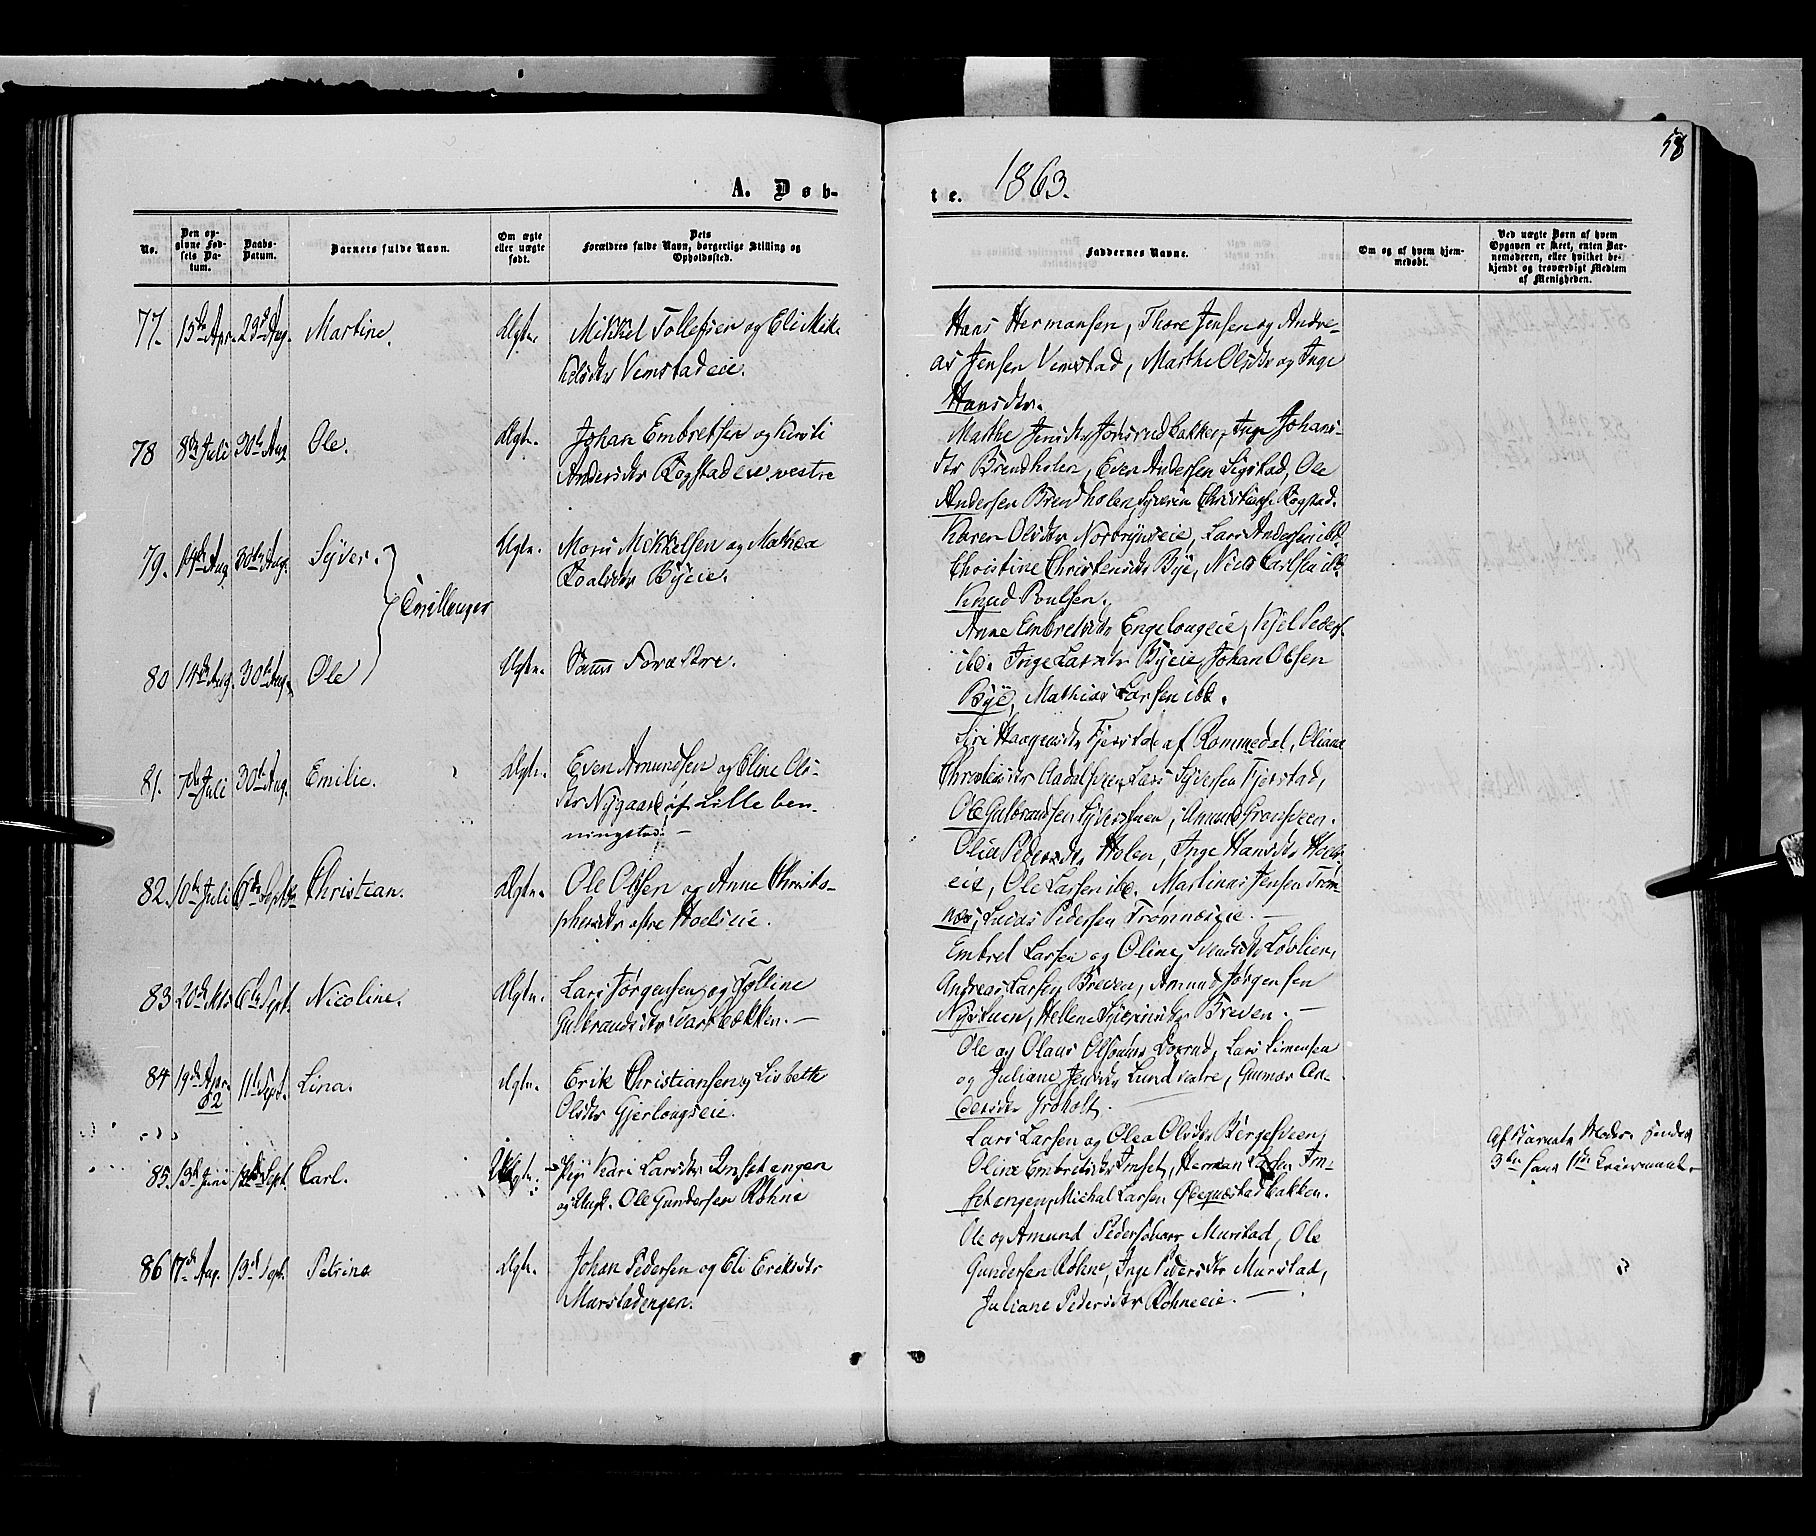 58
1863.
A. Døb-
te.
No.
Den op-
givne Fød-
sels Da-
tum.
Daabs-
Datum.
Barnets fulde Navn.
Om ægte
eller uægte
født.
Dets
Forældres fulde Navn, borgerlige Stilling og
Opholdssted.
Faddernes Navne.
Om og af hvem hjem-
medøbt.
Ved uægte Børn af hvem
Opgaven er skeet, enten Bar-
nemoderen, eller hvilket be-
kjendt og troværdigt Medlem
af Menigheden.
77. 15de Apr. 23de Aug. Martine. Ægte.
Mikkel Tollefsen og Eli Mik-
kelsdtr Vemstadeie.
Hans Hermansen, Thore Jensen og Andre-
as Jensen Vemstad, Marthe Olsdtr og Inge
Hansdtr.
78 8de Juli 30te Aug Ole. Ægte.
Johan Embretsen og Kirsti
Andersdtr Rogstadeie vestre
Marthe Jensdtr Jonsrudbakken, Inge Johans-
dtr Brendholen, Even Andersen Sigstad, Ole
Andersen Brendholen, Syverin Rogstad.
79. 14de Aug 30te Aug. Syver. Ægte.
Tvillinger
Mons Mikkelsen og Mathea
Roalsdtr Byeie.
Karen Olsdtr Lars Andersen ibd.
Christine Christensdtr Bye, Niels Carlsen ibd.
Knud Poulsen.
80 14de Aug. 30te Aug. Ole Ægte.
Samme Forældre.
Anne Embretsdtr Engelaugeie, Kjel Peders.
ibd. Inge Larsdtr Byeie, Johan Olsen
Bye, Mathias Larsen ibd.
81. 7de Juli 30te Aug. Emilie. Ægte.
Even Amundsen og Eline Ols-
dtr Nygaard af Lille ben-
ningstad. —
Siri Haagensdtr Fjerstad af Rommedal, Oliane
Lars Syversen Fjerstad,
Ole Gulbrandsen Syverstuen, Amund Gronsveen.
82. 10de Juli 6te Septb Christian. Ægte.
Ole Olsen og Anne Christo-
phersdtr østre Hoelseie.
Olia Pedersdtr Holen, Inge Hansdtr Hoels-
eie, Ole Larsen ibd. Martinus Jensen Trøm-
næs, Lucas Pedersen Trømnæseie. —
83 20de 6te Sept. Nicoline. Ægte.
Lars Jørgensen og
Gulbrandsdtr —
Embret Larsen og Oline Svendsdtr Løvlien,
Andreas Larsen Breven, Amund Jørgensen
Nystuen, Hellene Syverinsdtr Breven. —
84 19de Apr. 62 11te Sept. Lina. Ægte.
Erik Christiansen og Lisbeth
Olsdtr Gjerlaugseie.
Ole og Olaus Olsønner Dørrud, Lars Simensen
og Juliane Jensdtr Lund vestre, Gunnor An-
dersdtr Grøholt.
85. 13de Juni 13de Sept. Carl. Uægte.
Pige Kari Larsdtr Imsetengen
og Ungk. Ole Gundersen Røhne
Lars Larsen og Olea Olsdtr Børgesveen,
Oline Embretsdtr Imset, Herman Larsen Im-
setengen, Michal Larsen
Af Barnets Moder. Hendes
3die hans 1ste Leiermaal.
86 17de Aug. 13de Sept. Petrine Ægte.
Johan Pedersen og Eli Eriksdtr
Murstadengen.
Ole og Amund Pedersønner Murstad, Ole
Gundersen Røhne, Inge Pedersdtr Murstad,
Juliane Pedersdtr Røhneeie. —